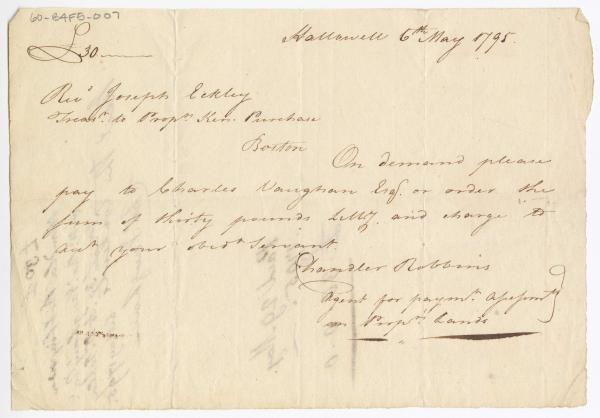 60-E4FB-007
£30
Hallowell 6th May 1795.
Revd Joseph Eckley
Treasr. to Propr. Ken. Purchase
Boston
On demand please
pay to Charles Vaughan Esq. or order the
sum of thirty pounds LMy. and charge to
acct. your obedt Servant
Chandler Robbins
Agent for paymt. Assessmts
on Propr. Lands